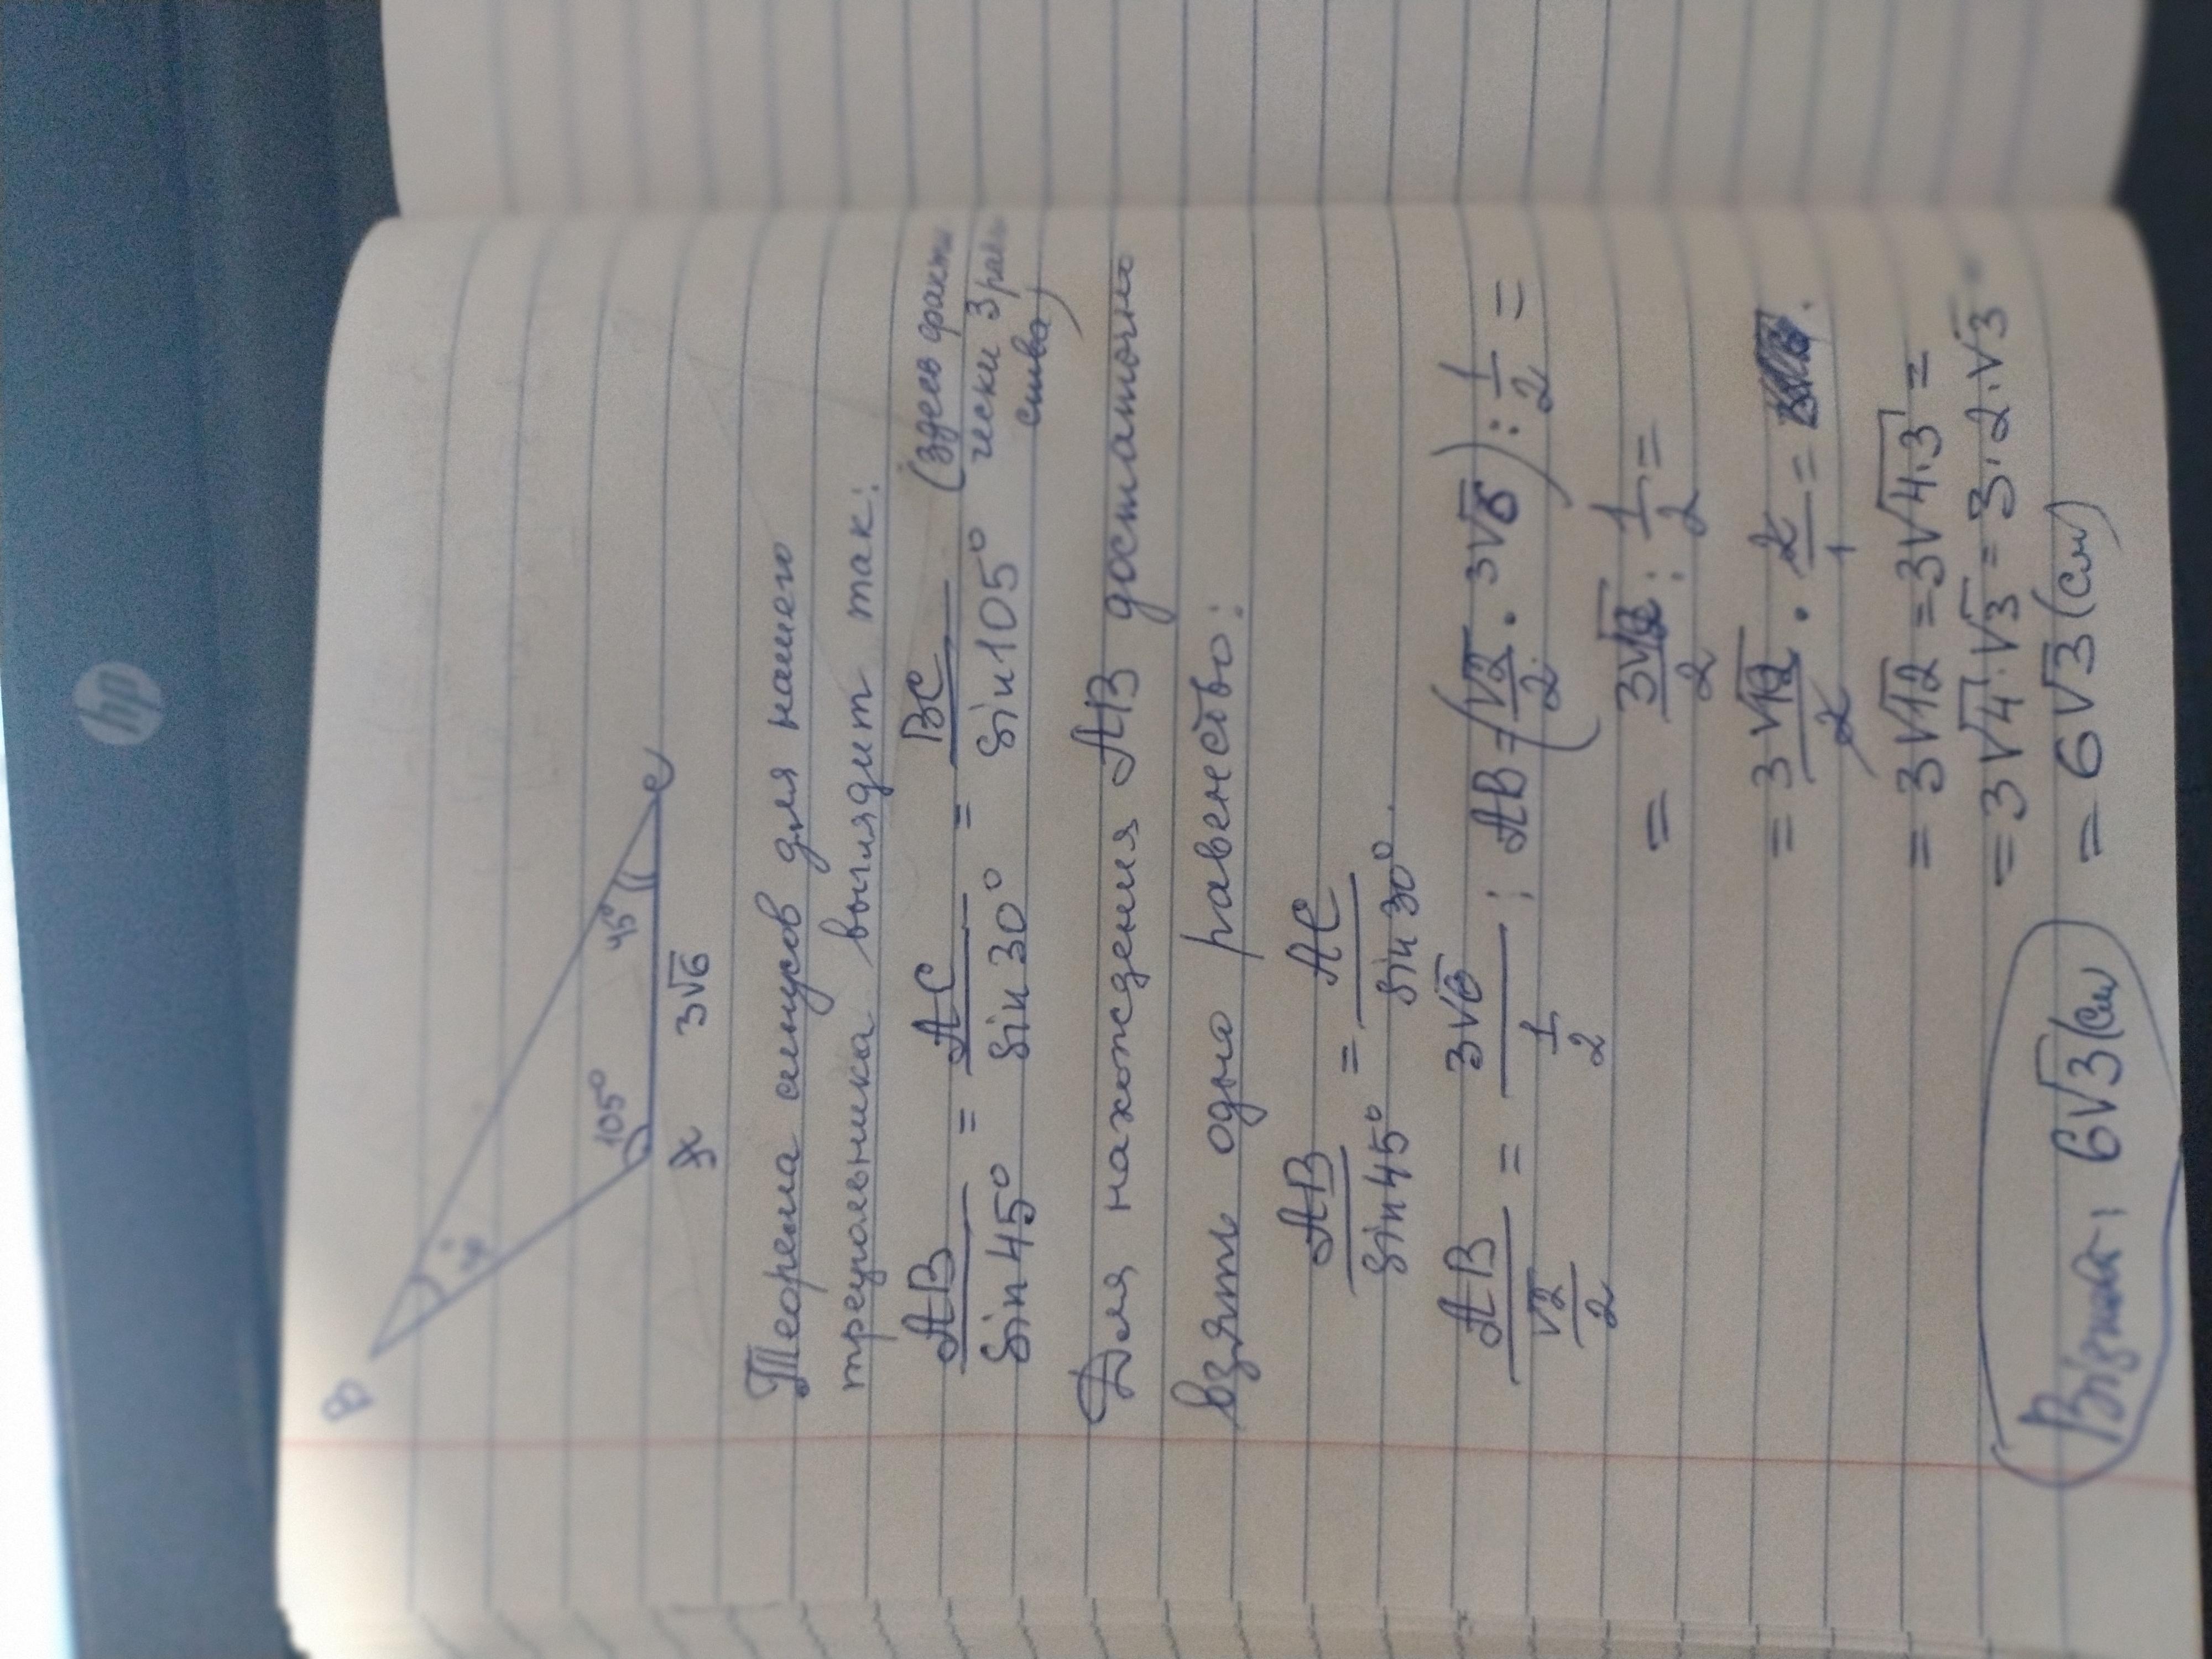 hp
B
30°
105°
45°
C
A
3√6
Теорема синусов для нашего
треугольника выглядит так:
AB/sin45° = AC/sin30° = BC/sin105° (здесь факти
чески 3 равен
ства)
Для нахождения AB достаточно
взять одно равенство:
AB/sin45° = AC/sin30°.
AB/(√2/2) = 3√6/(1/2) ; AB=(√2/2 · 3√6) : 1/2 =
= 3√12/2 : 1/2 =
= 3√12/2 · 2/1 =
= 3√12 = 3√4·3 =
= 3√4·√3 = 3·2·√3 =
= 6√3 (см)
6√3 (см